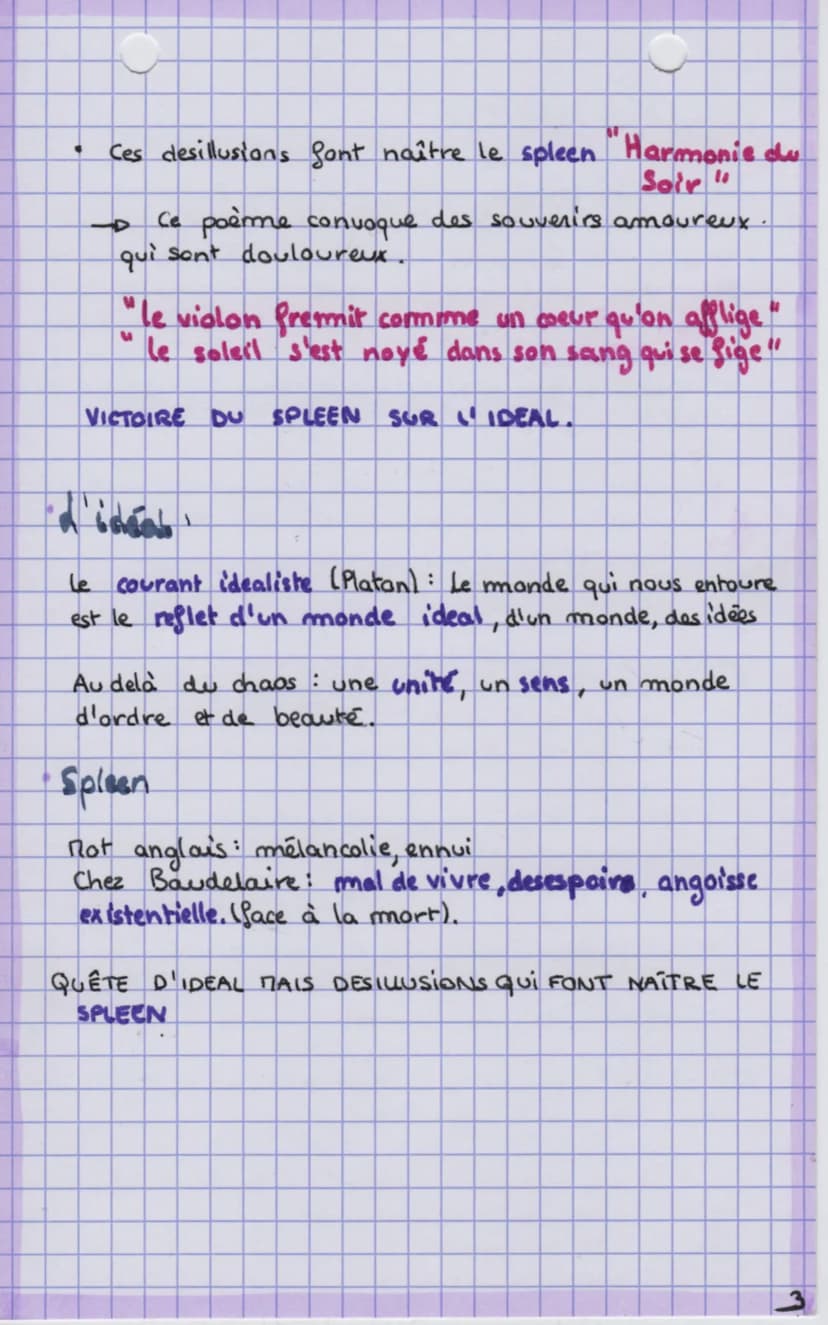 • Ces desillusions font naître le spleen "Harmonie du
Soir"
→ Ce poème convoque des souvenirs amoureux.
qui sont douloureux.
"le violon fremit comme un coeur qu'on afflige"
"le soleil s'est noyé dans son sang qui se fige"
VICTOIRE DU SPLEEN SUR L'IDEAL.
• L'idéal:
Le courant idealiste (Platon): Le monde qui nous entoure
est le reflet d'un monde ideal, d'un monde, des idées
Au delà du chaos : une unité, un sens, un monde
d'ordre et de beauté.
• Spleen
Mot anglais: mélancolie, ennui
Chez Baudelaire: mal de vivre, desespoire, angoisse
existentielle. (face à la mort).
QUÊTE D'IDEAL MAIS DESILLUSIONS qui FONT NAÎTRE LE
SPLEEN
3